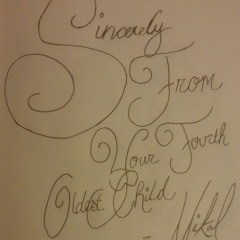 Sincerely
From
Your Fourth
Oldest Child
- Mikal